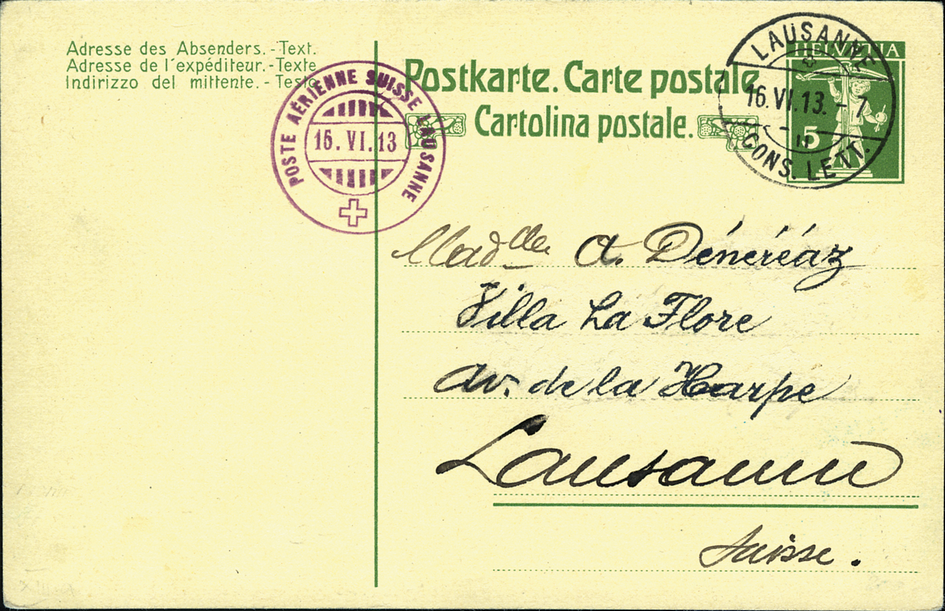 Adresse des Absenders.-Text.
Adresse de l'expéditeur.-Texte.
Indirizzo del mittente.-Testo
POSTE AÉRIENNE SUISSE LAUSANNE
16.VI.13
Postkarte. Carte postale.
Cartolina postale.
LAUSANNE
16.VI.13.-7
CONS. LETT.
HELVETIA
5
A. Dénéréaz
Villa La Flore
Av. de la Harpe
Lausanne
Suisse.